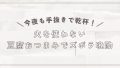 今夜も手抜きで乾杯！
火を使わない
夏空おつまみでズボラ晩酌